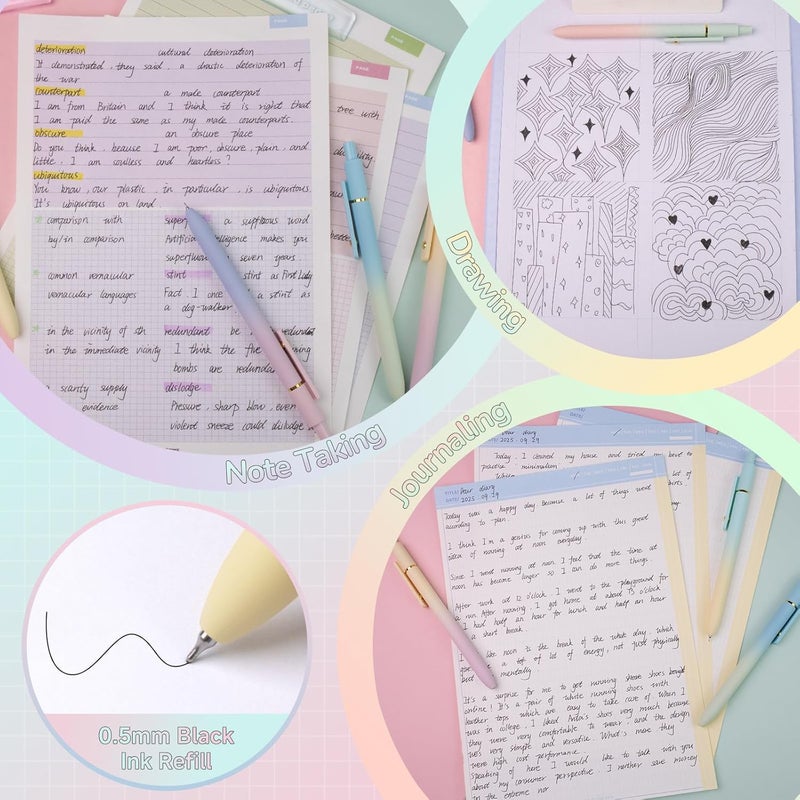 deterioration cultural deterioration
It demonstrated, they said, a drastic deterioration of
the war
counterpart a male counterpart
I am from Britain and I think it is right that
I am paid the same as my male counterparts.
obscure an obscure place
Do you think, because I am poor, obscure, plain, and
little, I am soulless and heartless?
ubiquitous
You know, our plastic, in particular, is ubiquitous.
It's ubiquitous on land.
comparison with
by/in comparison
common vernacular
vernacular languages
in the vicinity of sth
in the immediate vicinity
scarcity supply
evidence
a word
makes you
seven years.
stint stint as First Lady
Fact. I once a stint as
a dog-walker
redundant be redundant
I think the five
bombs are
dislodge
Pressure, sharp blow, even
violent sneeze could dislodge
PAGE
PAGE
PAGE
tree with
Note Taking
Drawing
Journaling
0.5mm Black
Ink Refill
DATE:
dear diary
2025.09.29
Today, I cleaned my house and tried my best to
practice minimalism
lot of
TITLE: Dear diary
DATE: 2025.09.29
Today was a happy day because a lot of things went
according to plan.
I think I'm a genius for coming up with this great
idea of running at noon everyday.
Since I went running at noon, I feel that the time at
noon has become longer so I can do more things.
After work at 12 o'clock, I went to the playground for
a run. After running, I got home at about 13 o'clock
I had half an hour for lunch and half an hour
a short break.
like noon is the break of the whole day, which
a lot of energy, not just physically
but mentally
It's a surprise for me to get running shoes bought
online! It's a pair of white running shoes with
leather tops which are easy to take care of. When I
was in college, I liked Anta's shoes very much because
they were very comfortable to wear, and the design
was very simple and versatile. What's more they
were high cost performance.
Speaking of here I would like to talk with you
about my consumer perspective. I neither save money
in the extreme nor